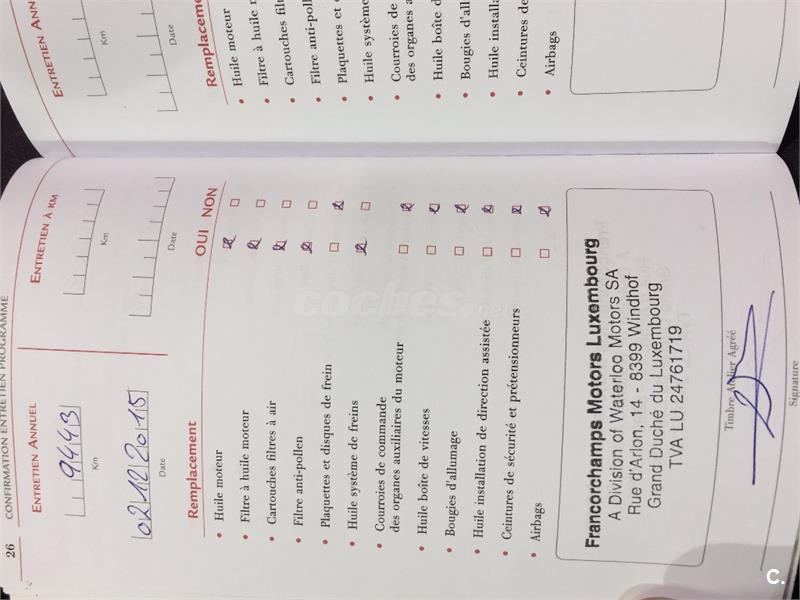 26
CONFIRMATION ENTRETIEN PROGRAMMÉ
ENTRETIEN ANNUEL
9443
Km
02 12 2015
Date
ENTRETIEN À KM
Km
Date
Remplacement
OUI NON
• Huile moteur
• Filtre à huile moteur
• Cartouches filtres à air
• Filtre anti-pollen
• Plaquettes et disques de frein
• Huile système de freins
• Courroies de commande
des organes auxiliaires du moteur
• Huile boîte de vitesses
• Bougies d'allumage
• Huile installation de direction assistée
• Ceintures de sécurité et prétensionneurs
• Airbags
Francorchamps Motors Luxembourg
A Division of Waterloo Motors SA
Rue d'Arlon, 14 - 8399 Windhof
Grand Duché du Luxembourg
TVA LU 24761719
Timbre Atelier Agréé
Signature
ENTRETIEN ANN
Km
Date
Remplacement
• Huile moteur
• Filtre à huile m
• Cartouches filt
• Filtre anti-poll
• Plaquettes et d
• Huile système
• Courroies de
des organes a
• Huile boîte d
• Bougies d'all
• Huile installa
• Ceintures de
• Airbags
coches.net
C.